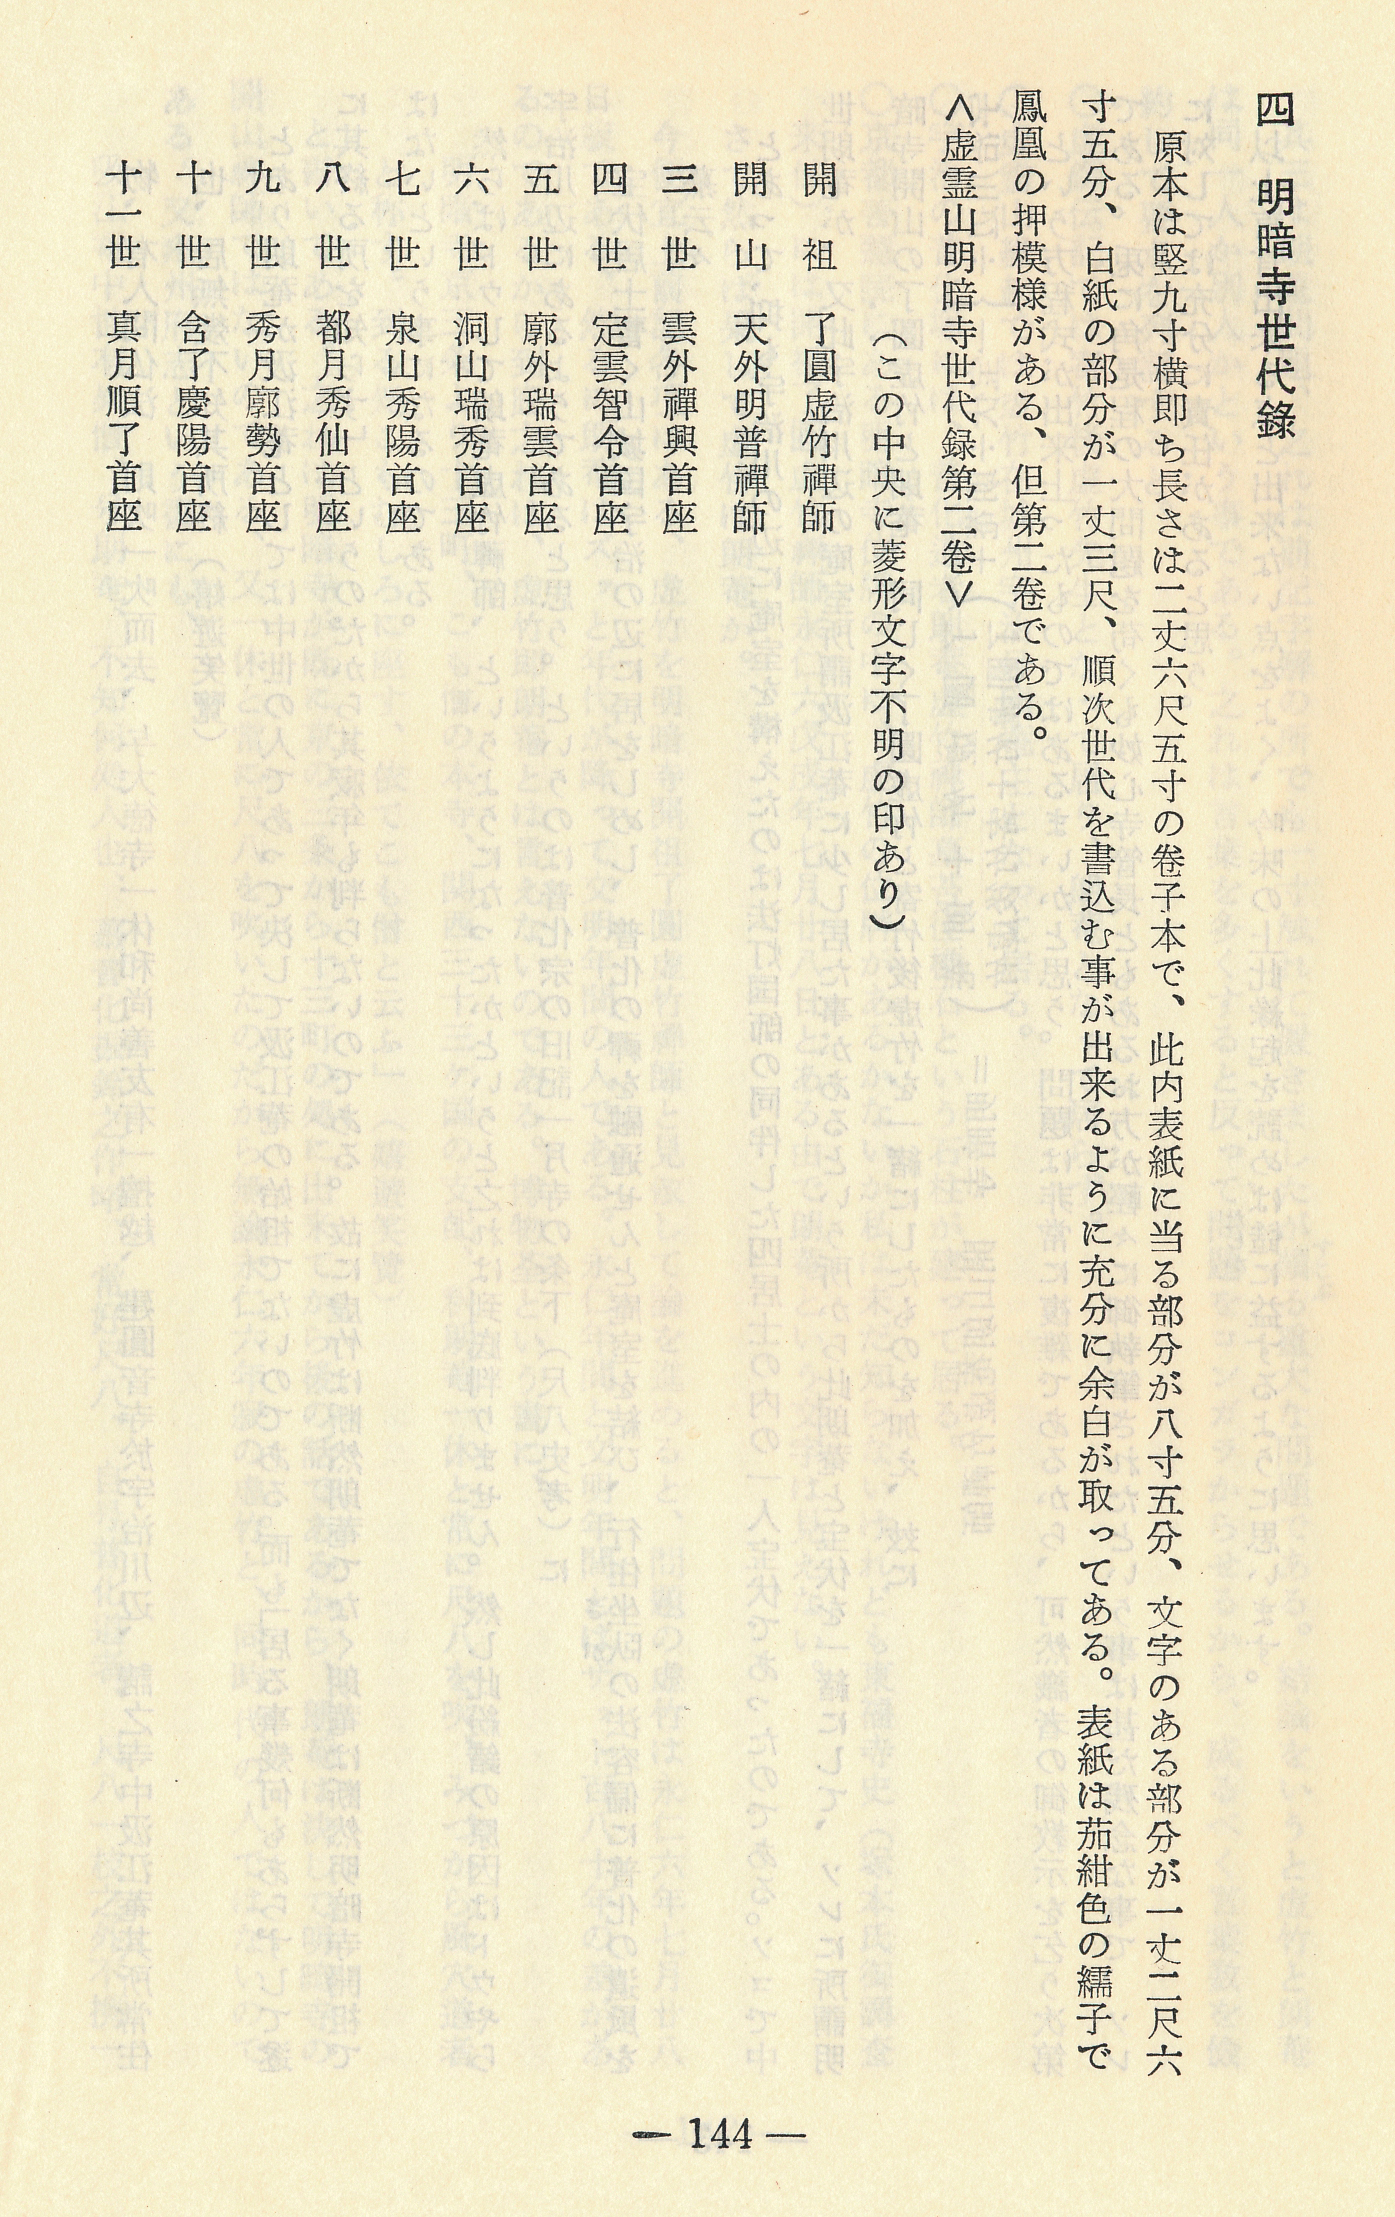 四　明暗寺世代錄
原本は竪九寸横即ち長さは二丈六尺五寸の巻子本で、此内表紙に当る部分が八寸五分、文字のある部分が一丈二尺六
寸五分、白紙の部分が一丈三尺、順次世代を書込む事が出来るように充分に余白が取ってある。表紙は茄紺色の繻子で
鳳凰の押模様がある、但第二巻である。
＜虚霊山明暗寺世代録第二巻＞
（この中央に菱形文字不明の印あり）
開　祖　了圓虚竹禪師
開　山　天外明普禪師
三　世　雲外禪興首座
四　世　定雲智令首座
五　世　廓外瑞雲首座
六　世　洞山瑞秀首座
七　世　泉山秀陽首座
八　世　都月秀仙首座
九　世　秀月廓勢首座
十　世　含了慶陽首座
十一世　真月順了首座
— 144 —